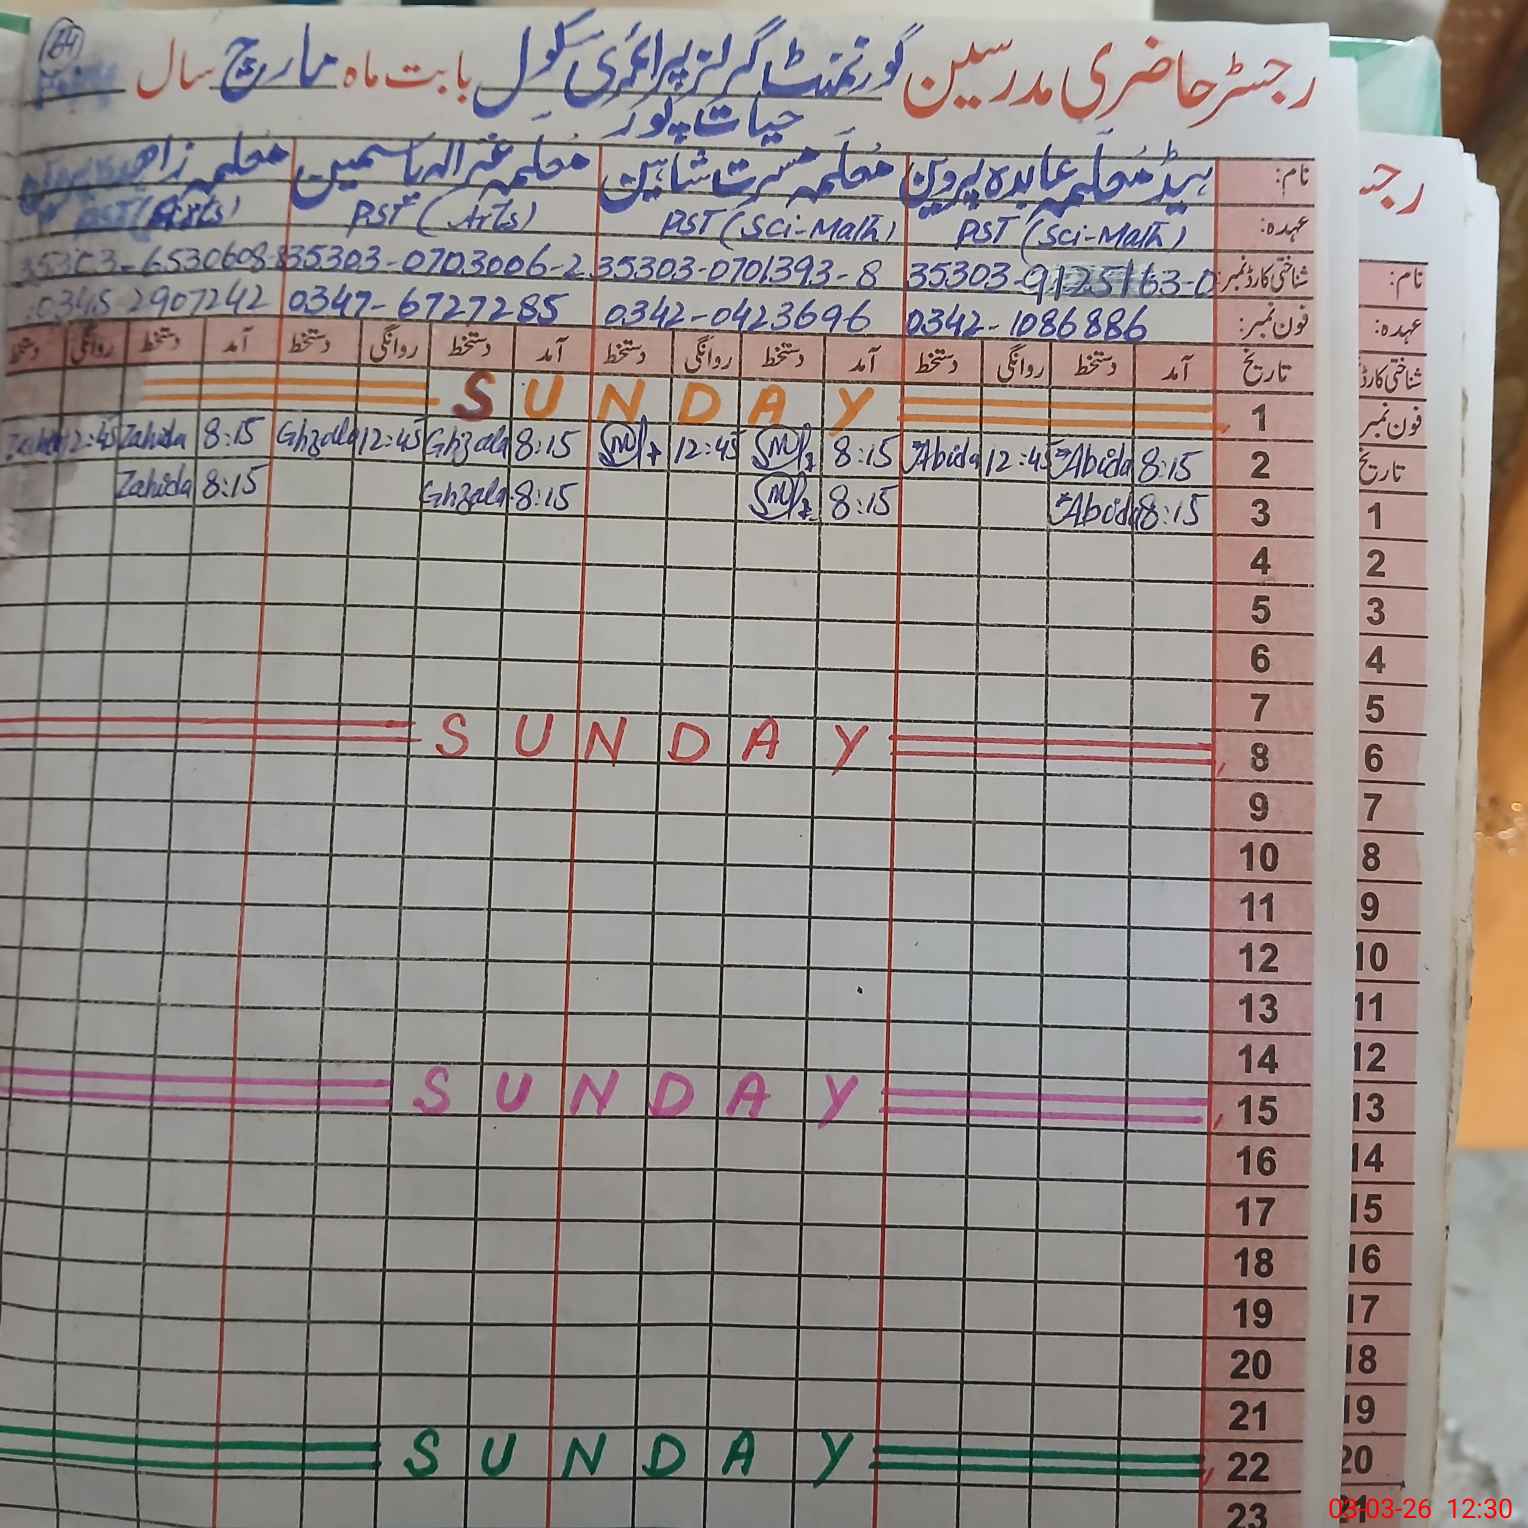 64
رجسٹر حاضری مدرسین گورنمنٹ گرلز پرائمری سکول بابت ماہ مارچ سال
حیات پور
نام: ہیڈ معلمہ عابدہ پروین معلمہ مسرت شاہین معلمہ غزالہ یاسمین معلمہ
عہدہ: PST (Sci-Math) PST (Sci-Math) PST (Arts) PST (Arts)
شناختی کارڈ نمبر: 35303-9125163-0 35303-0701393-8 35303-0703006-2 35303-6530608-8
فون نمبر: 0342-1086886 0342-0423696 0347-6727285 0345 2907242
تاریخ آمد دستخط روانگی دستخط آمد دستخط روانگی دستخط آمد دستخط روانگی دستخط آمد دستخط روانگی دستخط
1 SUNDAY
2 8:15 Abida 12:45 Abida 8:15 12:45 8:15 Ghzala 12:45 Ghzala 8:15 Zahida 12:45
3 8:15 Abida 8:15 8:15 Ghzala 8:15 Zahida
4
5
6
7
8 SUNDAY
9
10
11
12
13
14
15 SUNDAY
16
17
18
19
20
21
22 SUNDAY
23
نام:
عہدہ:
فون نمبر
تاریخ
1
2
3
4
5
6
7
8
9
10
11
12
13
14
15
16
17
18
19
20
21
03-03-26 12:30